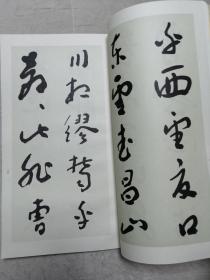 乎西望夏口
東望武昌山
川相繆鬱乎
蒼〻此非曹